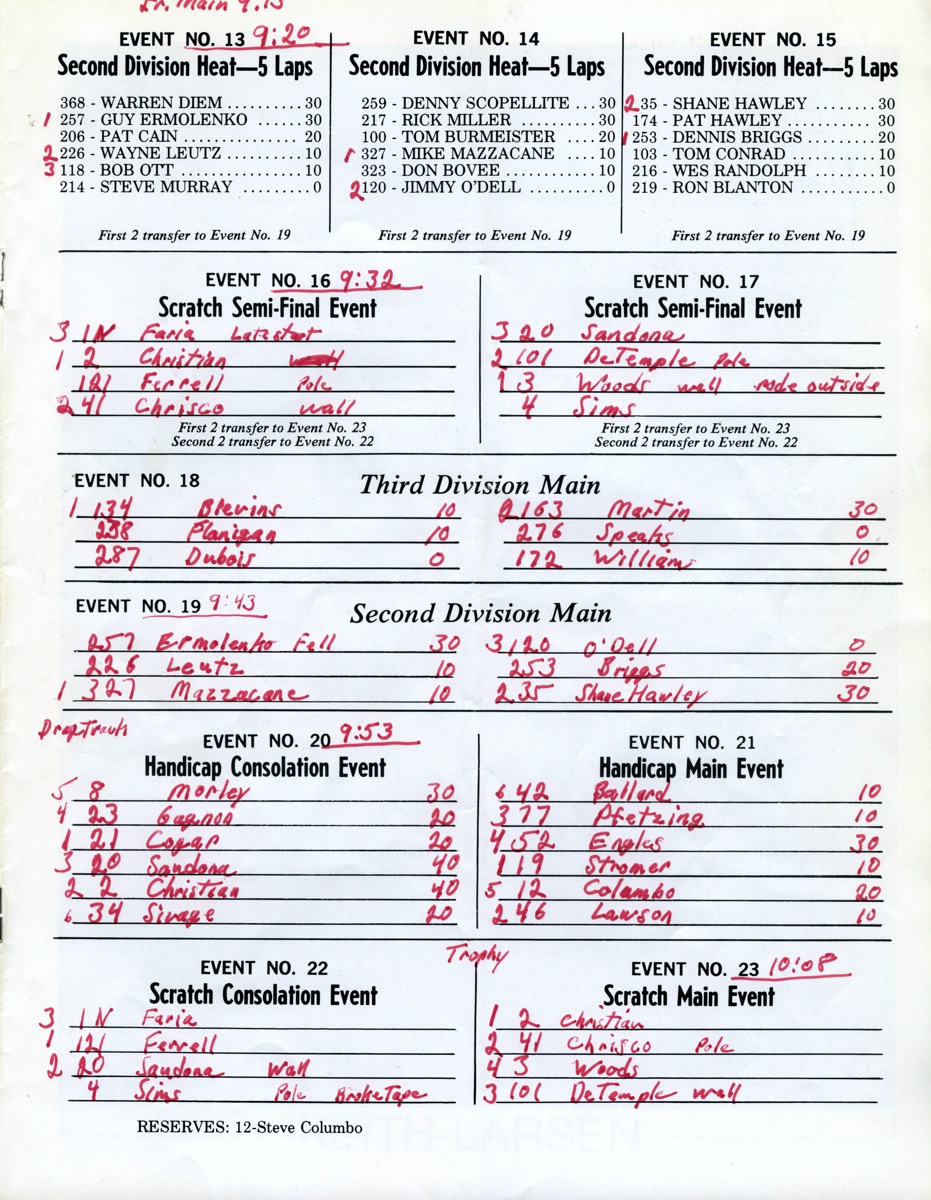 Jr. Main 9:15
EVENT NO. 13 9:20
Second Division Heat—5 Laps
368 - WARREN DIEM .......... 30
1 257 - GUY ERMOLENKO ...... 30
206 - PAT CAIN ................ 20
2 226 - WAYNE LEUTZ .......... 10
3 118 - BOB OTT ................ 10
214 - STEVE MURRAY ......... 0
First 2 transfer to Event No. 19
EVENT NO. 14
Second Division Heat—5 Laps
259 - DENNY SCOPELLITE ... 30
217 - RICK MILLER ........... 30
100 - TOM BURMEISTER ..... 20
1 327 - MIKE MAZZACANE .... 10
323 - DON BOVEE ............. 10
2 120 - JIMMY O'DELL ......... 0
First 2 transfer to Event No. 19
EVENT NO. 15
Second Division Heat—5 Laps
2 35 - SHANE HAWLEY ......... 30
174 - PAT HAWLEY ............ 30
1 253 - DENNIS BRIGGS ........ 20
103 - TOM CONRAD ........... 10
216 - WES RANDOLPH ........ 10
219 - RON BLANTON .......... 0
First 2 transfer to Event No. 19
EVENT NO. 16 9:32
Scratch Semi-Final Event
3 1N Faria Late start
1 2 Christian
121 Ferrell Pole
2 41 Chrisco wall
First 2 transfer to Event No. 23
Second 2 transfer to Event No. 22
EVENT NO. 17
Scratch Semi-Final Event
3 20 Sandona
2 101 DeTemple Pole
1 3 Woods wall rode outside
4 Sims
First 2 transfer to Event No. 23
Second 2 transfer to Event No. 22
EVENT NO. 18 Third Division Main
1 134 Blevins 10
238 Flanigan 10
287 Dubois 0
2 163 Martin 30
276 Speaks 0
172 Williams 10
EVENT NO. 19 9:43 Second Division Main
257 Ermolenko Fell 30
226 Leutz 10
1 327 Mazzacane 10
3 120 O'Dell 0
253 Briggs 20
2 35 Shane Hawley 30
EVENT NO. 20 9:53
Handicap Consolation Event
5 8 Morley 30
4 23 Gagnon 20
1 21 Cogar 20
3 20 Sandona 40
2 2 Christian 40
6 34 Sivage 20
EVENT NO. 21
Handicap Main Event
6 42 Ballard 10
3 77 Pfetzing 10
4 52 Engles 30
1 19 Stromer 10
5 12 Columbo 20
2 46 Lawson 10
EVENT NO. 22
Scratch Consolation Event
3 1N Faria
1 121 Ferrell
2 20 Sandona Wall
4 Sims Pole Broke Tape
Trophy
EVENT NO. 23 10:08
Scratch Main Event
1 2 Christian
2 41 Chrisco Pole
4 3 Woods
3 101 DeTemple wall
RESERVES: 12-Steve Columbo